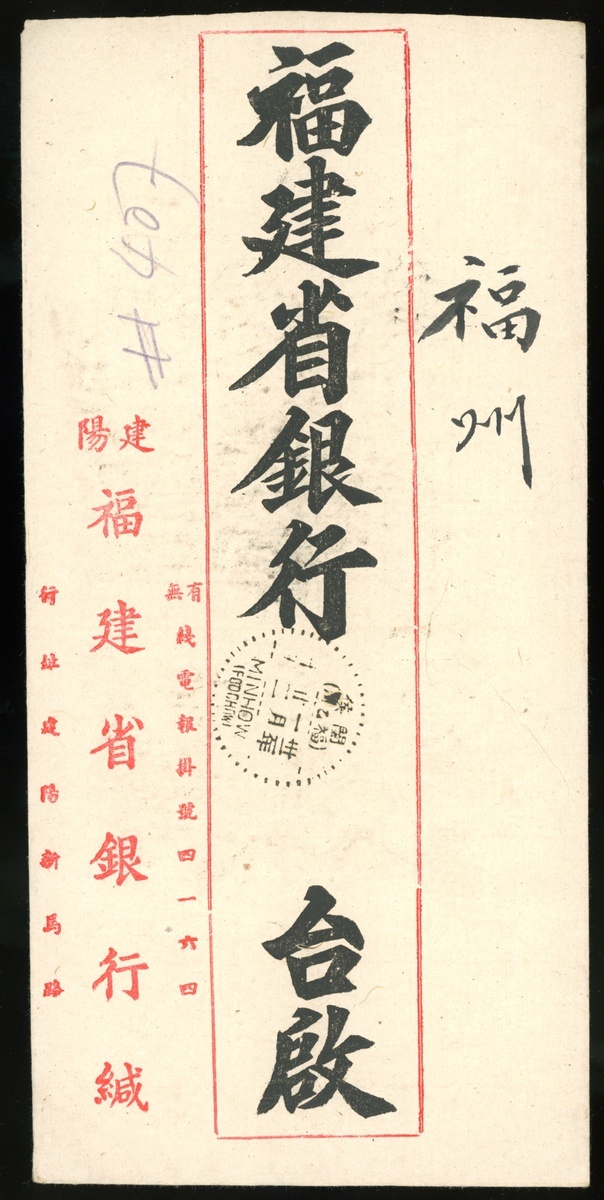 福州
福建省銀行 台啟
有無綫電報掛號四一六四
建陽
福建省銀行緘
行址建陽新馬路
MINHOW
(FOOCHOW)